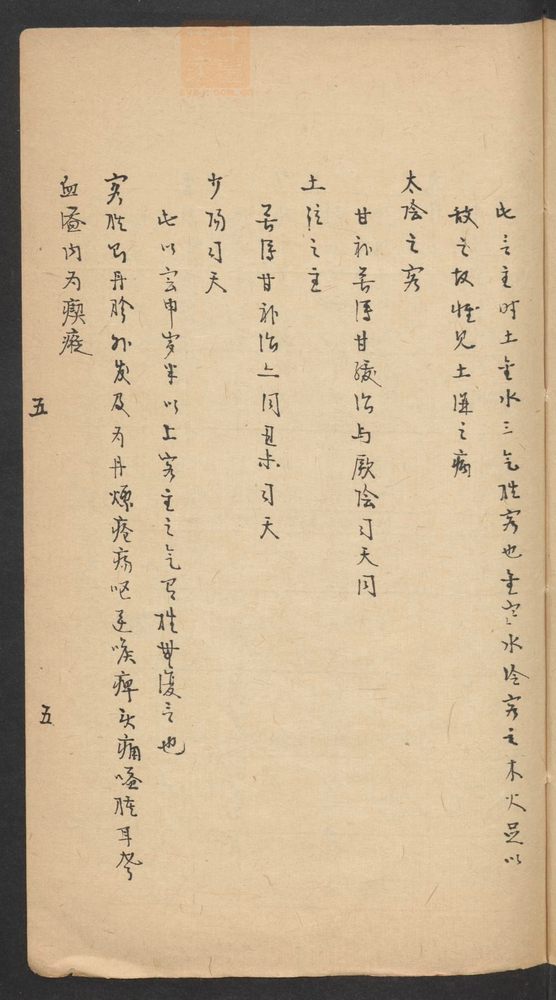 此言主时土金水三气胜客也金寒水冷客之木火足以
敌之故惟见土湿之病
太阴之客
甘补苦泻甘缓治与厥阴司天同
土位之主
苦泻甘补治上同丑未司天
少阳司天
此以寅申岁半以上客主之气有胜无复言也
客胜则丹胗外发及为丹熛疮疡呕逆喉痹头痛嗌肿耳聋
血溢内为瘈瘲
五
五